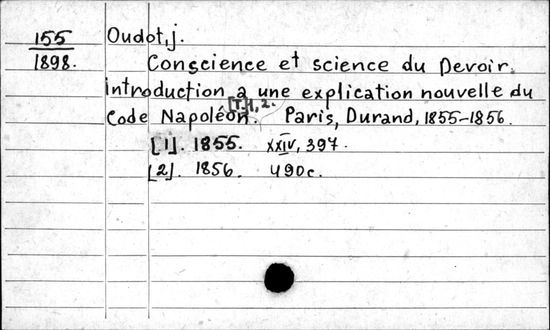 155 Oudot, j.
1898. Conscience et science du Devoir.
introduction a une explication nouvelle du
[T.] 1, 2.
Code Napoléon. Paris, Durand, 1855-1856.
[1]. 1855. XXIV, 397.
[2]. 1856. 490c.